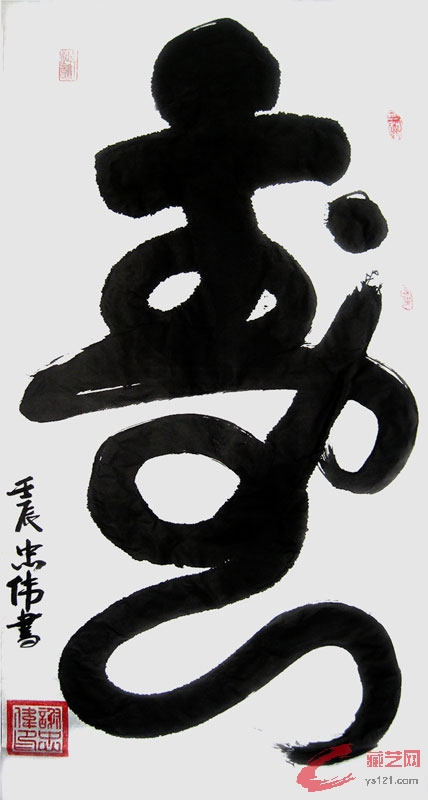 壽
壬辰忠伟書
謝忠偉印
藏艺网
ys121.com